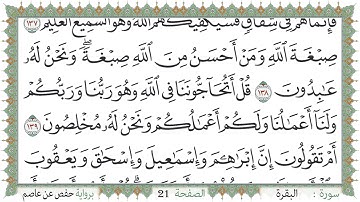 فَإِنَّمَا هُمْ فِي شِقَاقٍ فَسَيَكْفِيكَهُمُ اللَّهُ وَهُوَ السَّمِيعُ الْعَلِيمُ ١٣٧
صِبْغَةَ اللَّهِ وَمَنْ أَحْسَنُ مِنَ اللَّهِ صِبْغَةً ۖ وَنَحْنُ لَهُ
عَابِدُونَ ١٣٨ قُلْ أَتُحَاجُّونَنَا فِي اللَّهِ وَهُوَ رَبُّنَا وَرَبُّكُمْ
وَلَنَا أَعْمَالُنَا وَلَكُمْ أَعْمَالُكُمْ وَنَحْنُ لَهُ مُخْلِصُونَ ١٣٩
أَمْ تَقُولُونَ إِنَّ إِبْرَاهِيمَ وَإِسْمَاعِيلَ وَإِسْحَاقَ وَيَعْقُوبَ
سورة : البقرة الصفحة 21 برواية حفص عن عاصم